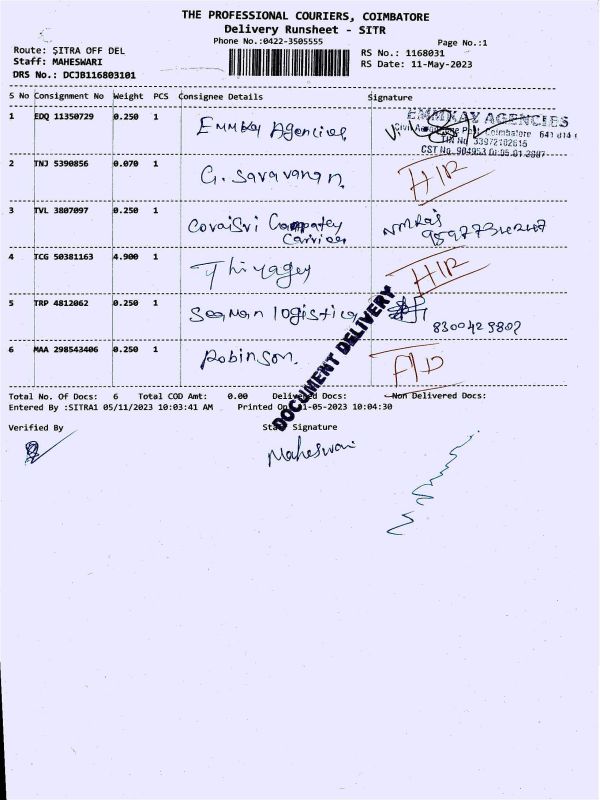 THE PROFESSIONAL COURIERS, COIMBATORE
Delivery Runsheet - SITR
Phone No.:0422-3505555
Page No.:1
Route: SITRA OFF DEL
RS No.: 1168031
Staff: MAHESWARI
RS Date: 11-May-2023
DRS No.: DCJB116803101
S No Consignment No Weight PCS Consignee Details Signature
1 EDQ 11350729 0.250 1 Emmkay Agencies
EMMKAY AGENCIES
Coimbatore 641 014
TIN No 33972182615
CST No. 904953 Dt.05.01.2007
2 TNJ 5390856 0.070 1 G. Saravanan.
3 TVL 3807097 0.250 1 Covaisri
Carrier
4 TCG 50381163 4.900 1
5 TRP 4812062 0.250 1 logistics
8300429802
6 MAA 298543406 0.250 1 Robinson.
DOCUMENT DELIVERY
Total No. Of Docs: 6 Total COD Amt: 0.00 Delivered Docs: Non Delivered Docs:
Entered By :SITRA1 05/11/2023 10:03:41 AM Printed On 11-05-2023 10:04:30
Verified By Staff Signature
Maheswari